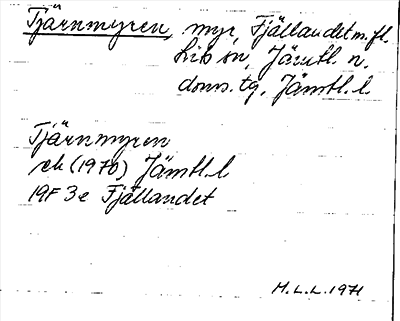 Tjärnmyren, myr, Fjällandet m.fl.
Lits sn, Jämtl. n.
doms. tg, Jämtl. l.
Tjärnmyren
ek (1970) Jämtl. l
19F 3e Fjällandet
M.L.L. 1971